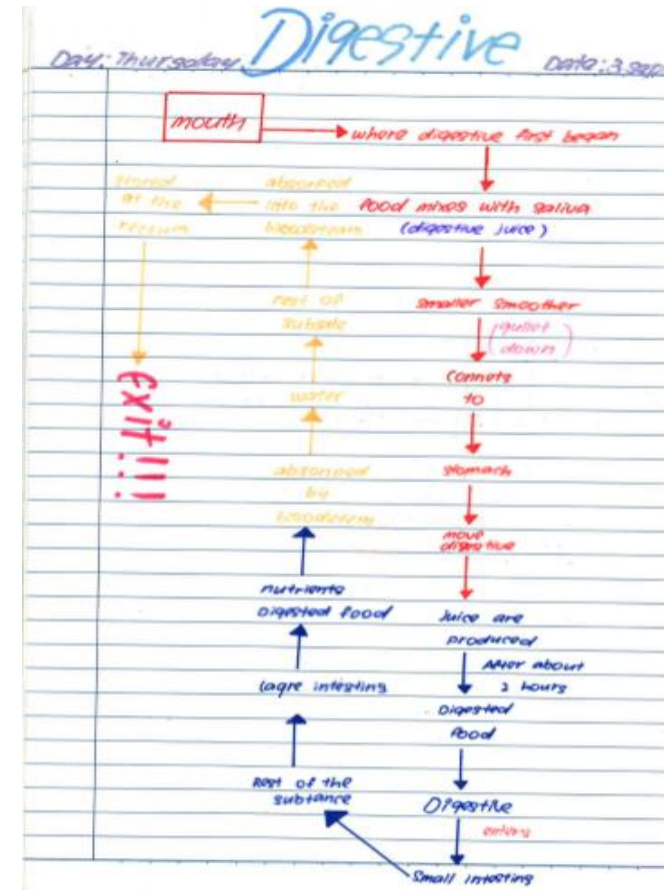 Digestive
Day: Thursday
Date: 3 sep
mouth
where digestive first began
food mixes with saliva
(digestive juice)
smaller smoother
(gullet
down)
connets
to
stomach
move
digestive
Juice are
produced
After about
2 hours
Digested
food
Digestive
enters
Small intesting
Rest of the
subtance
lagre intesting
nutrients
Digested food
absorped
by
water
rest of
absorped
into the
bloodstream
stored
at the
rectum
exit!!!!